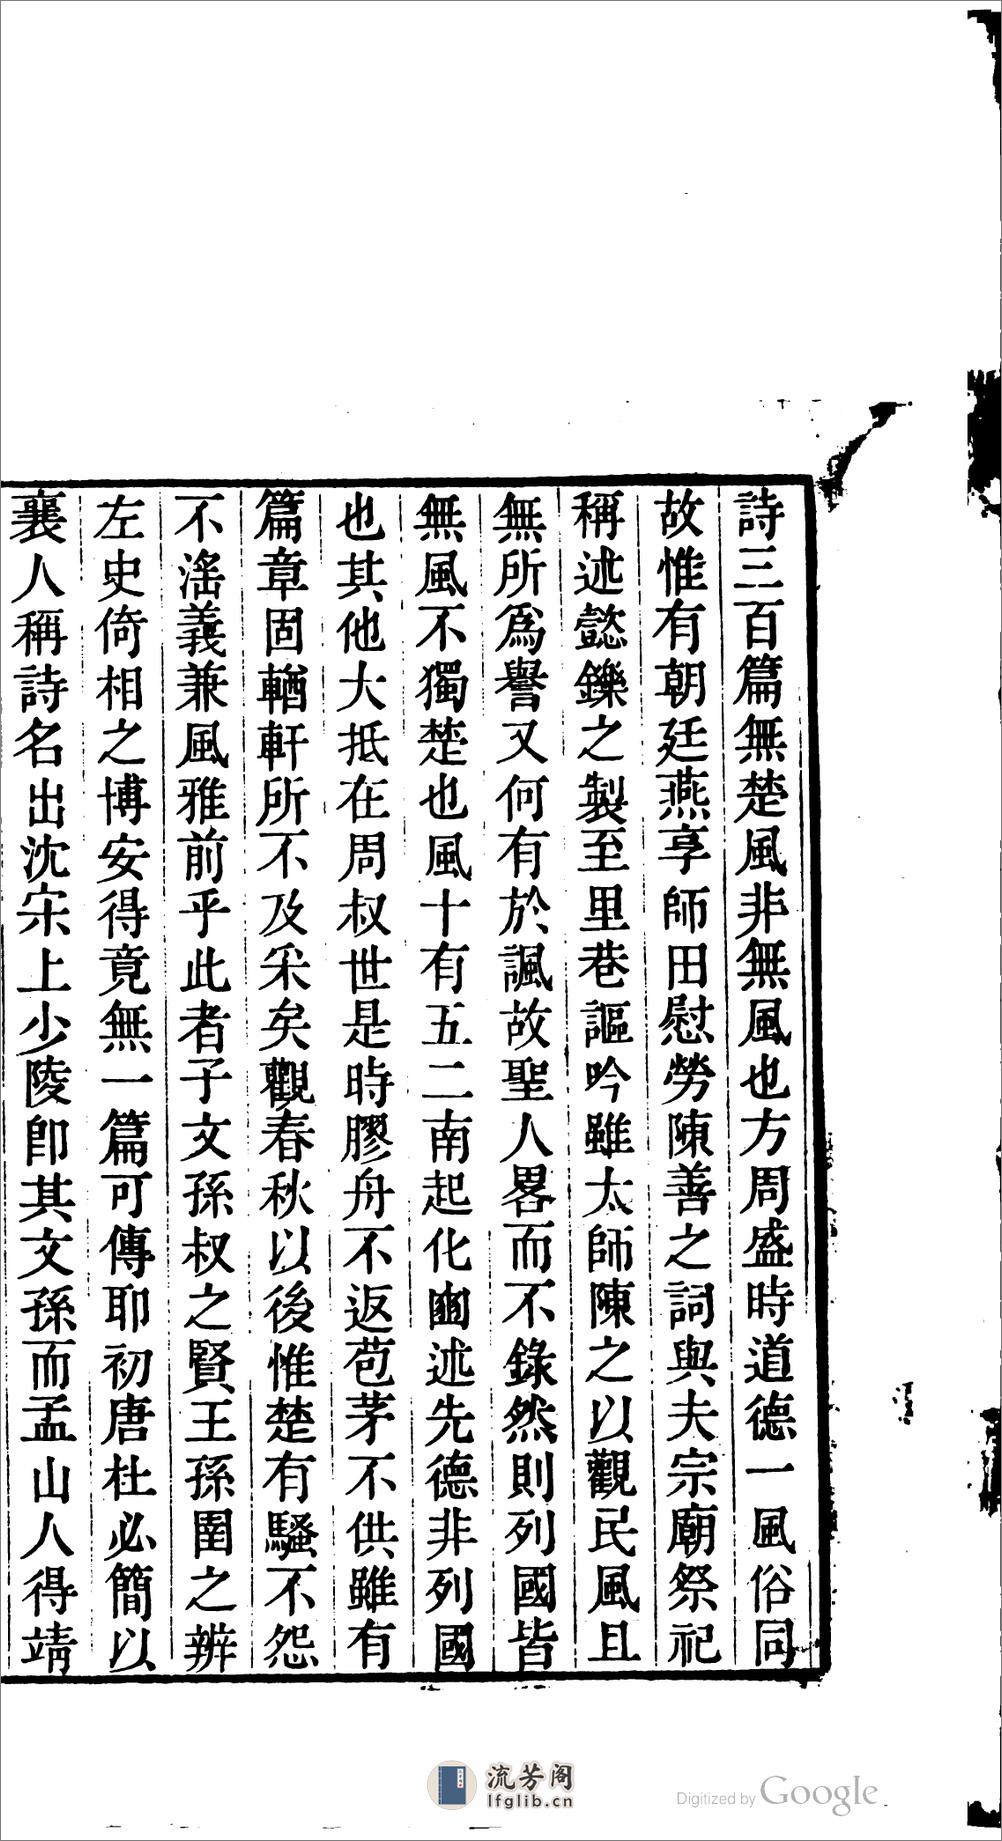 詩三百篇無楚風非無風也方周盛時道德一風俗同
故惟有朝廷燕享師田慰勞陳善之詞與夫宗廟祭祀
稱述懿鑠之製至里巷謳吟雖太師陳之以觀民風且
無所爲譽又何有於諷故聖人畧而不錄然則列國皆
無風不獨楚也風十有五二南起化豳述先德非列國
也其他大抵在周叔世是時膠舟不返苞茅不供雖有
篇章固輶軒所不及采矣觀春秋以後惟楚有騷不怨
不滛義兼風雅前乎此者子文孫叔之賢王孫圉之辨
左史倚相之博安得竟無一篇可傳耶初唐杜必簡以
襄人稱詩名出沈宋上少陵卽其文孫而孟山人得靖
流芳阁
lfglib.cn
Digitized by Google